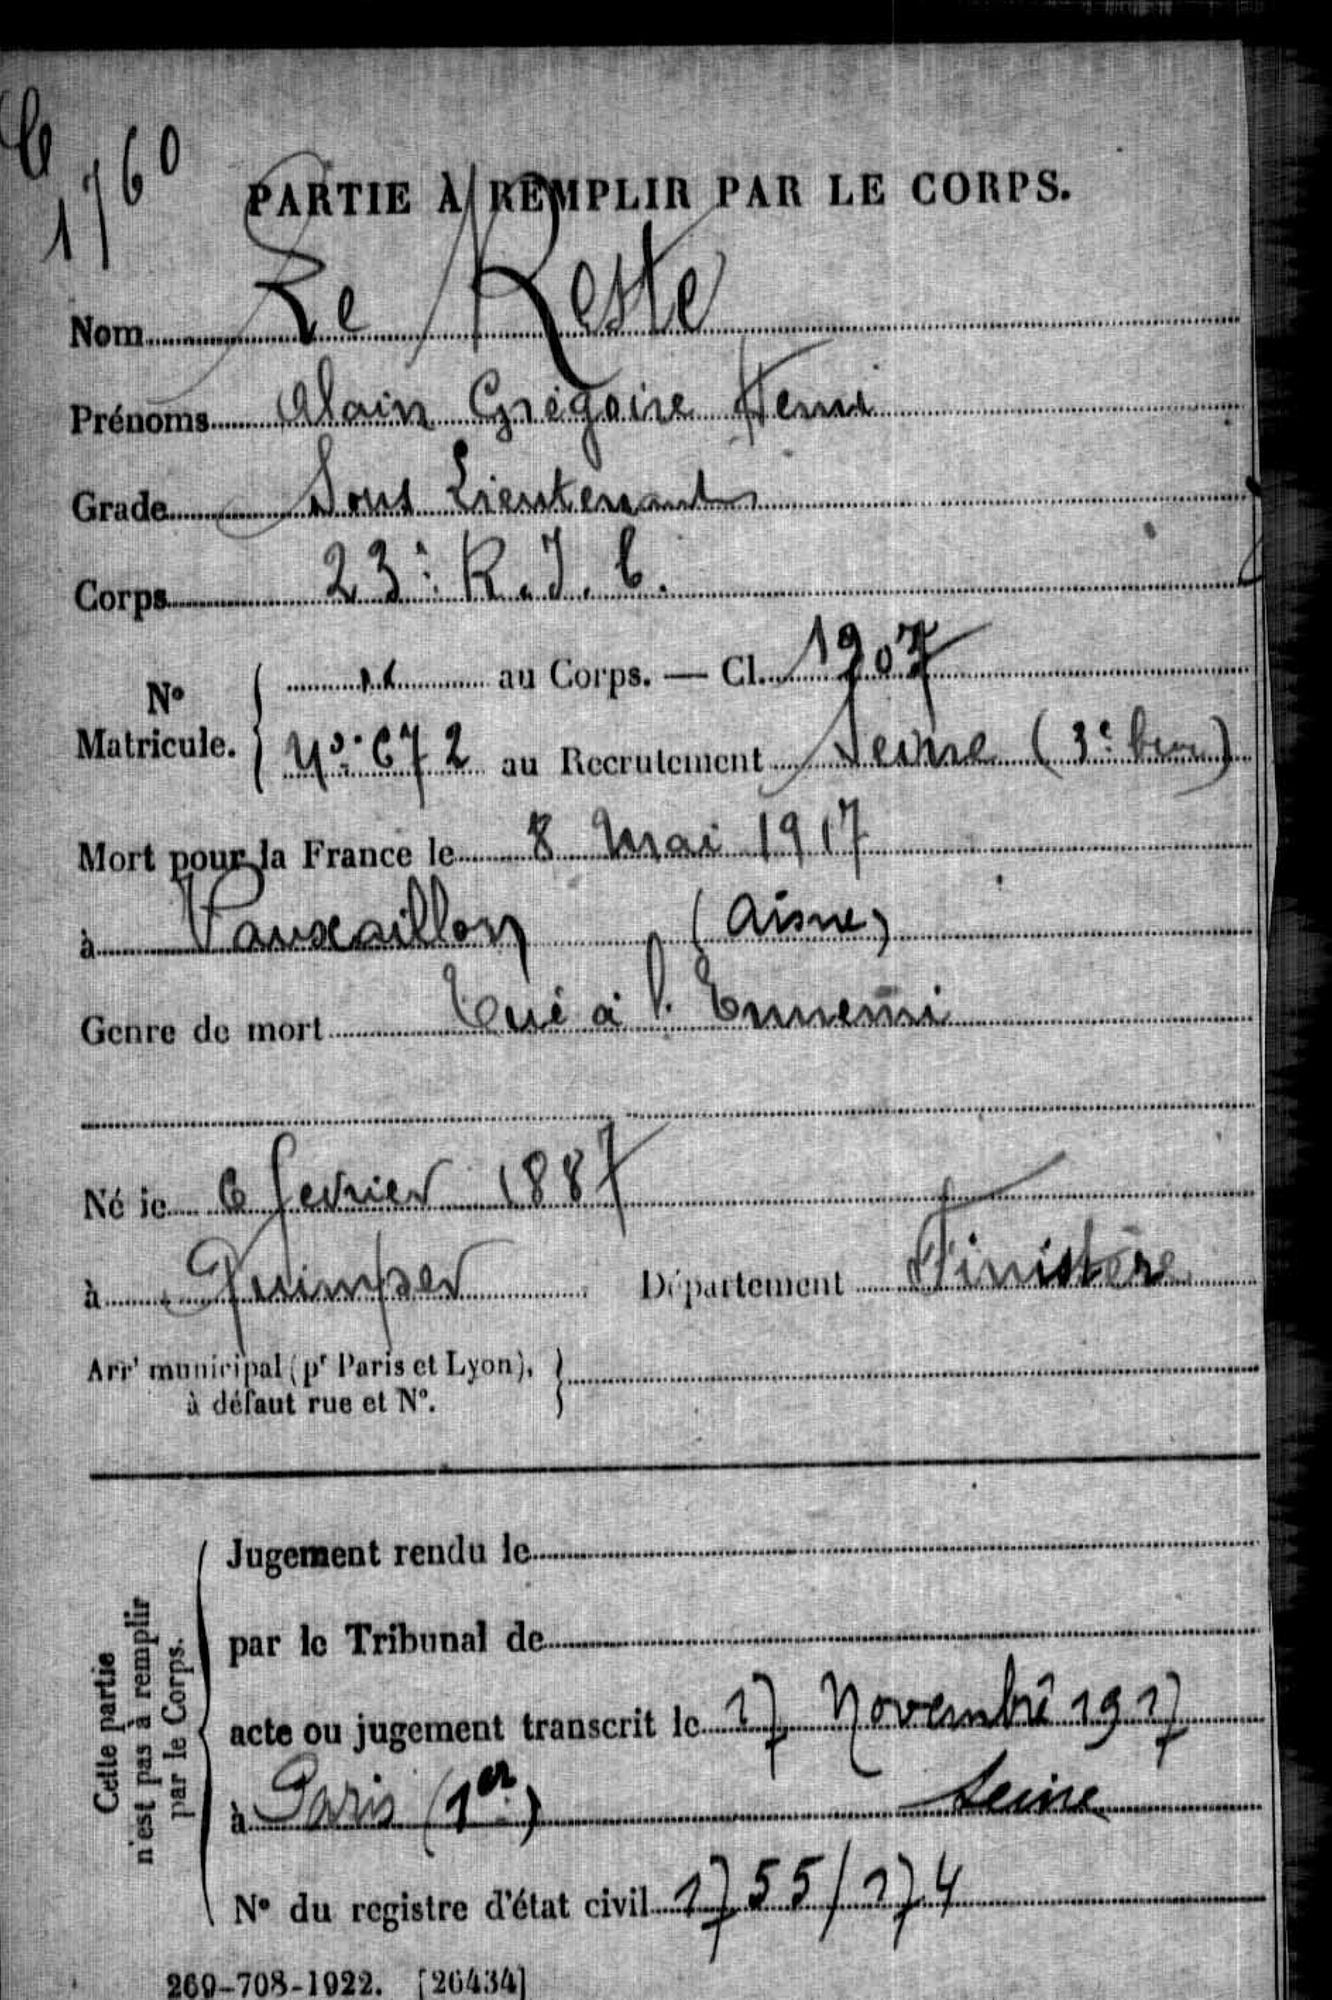 C 1760
PARTIE À REMPLIR PAR LE CORPS.
Nom Le Reste
Prénoms Alain Grégoire Henri
Grade Sous Lieutenant
Corps 23e R.I.C.
N° Matricule.
au Corps. — Cl. 1907
N°. 672 au Recrutement Seine (3e bau)
Mort pour la France le 8 Mai 1917
à Vauxaillon (Aisne)
Genre de mort Tué à l'Ennemi
Né le 6 fevrier 1887
à Quimper Département Finistère
Arrt municipal (pr Paris et Lyon),
à défaut rue et N°.
Cette partie
n'est pas à remplir
par le Corps.
Jugement rendu le
par le Tribunal de
acte ou jugement transcrit le 17 Novembre 1917
à Paris (1er) Seine
N° du registre d'état civil 1755/174
269-708-1922. [26434]